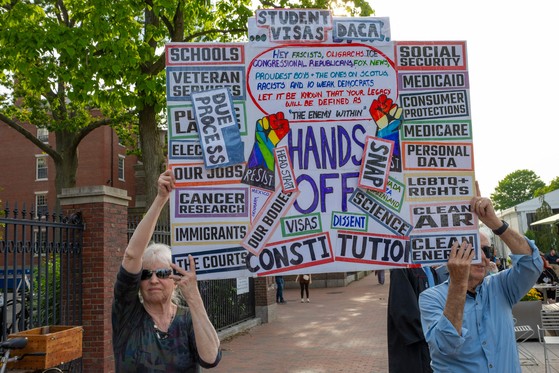 STUDENT
VISAS
DACA
HEY FASCISTS, OLIGARCHS, ICE
CONGRESSIONAL REPUBLICANS, FOX NEWS
PROUDEST BOYS + THE ONES ON SCOTUS,
RACISTS AND 10 WEAK DEMOCRATS
LET IT BE KNOWN THAT YOUR LEGACY
WILL BE DEFINED AS
"THE ENEMY WITHIN"
SCHOOLS
VETERAN SERVICES
DUE
PROCESS
OUR JOBS
CANCER
RESEARCH
IMMIGRANTS
COURTS
RESIST
HANDS
OFF
HEAD START
OUR BODIES
SNAP
SCIENCE
VISAS
DISSENT
CONSTITUTION
SOCIAL
SECURITY
MEDICAID
CONSUMER
PROTECTIONS
MEDICARE
PERSONAL
DATA
LGBTQS
RIGHTS
CLEAN
AIR
CLEAN
ENERGY